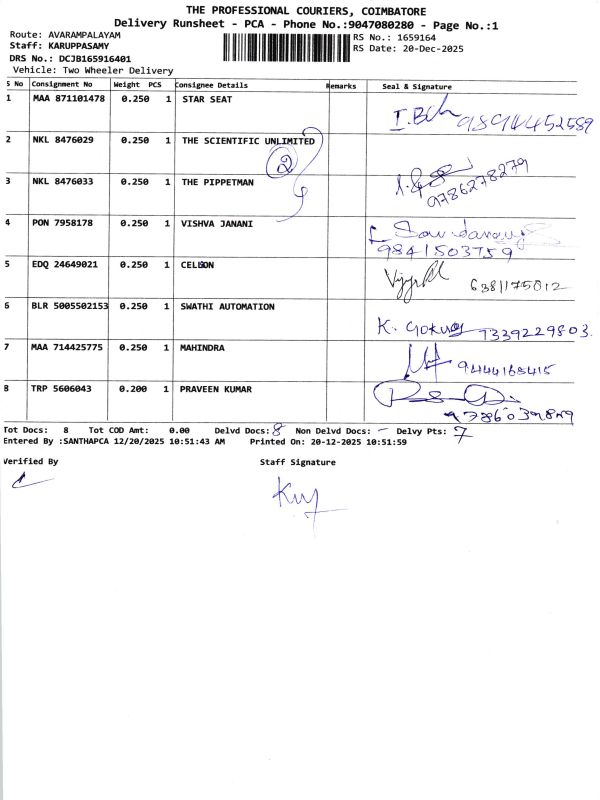 THE PROFESSIONAL COURIERS, COIMBATORE
Delivery Runsheet - PCA - Phone No.:9047080280 - Page No.:1
Route: AVARAMPALAYAM
RS No.: 1659164
Staff: KARUPPASAMY
RS Date: 20-Dec-2025
DRS No.: DCJB165916401
Vehicle: Two Wheeler Delivery
S No Consignment No Weight PCS Consignee Details Remarks Seal & Signature
1 MAA 871101478 0.250 1 STAR SEAT
9894452589
2 NKL 8476029 0.250 1 THE SCIENTIFIC UNLIMITED
2
3 NKL 8476033 0.250 1 THE PIPPETMAN
9786278279
4 PON 7958178 0.250 1 VISHVA JANANI
9841503759
5 EDQ 24649021 0.250 1
6381175012
6 BLR 5005502153 0.250 1 SWATHI AUTOMATION
K. Gokul 7339229803.
7 MAA 714425775 0.250 1 MAHINDRA
9444168415
8 TRP 5606043 0.200 1 PRAVEEN KUMAR
Tot Docs: 8 Tot COD Amt: 0.00 Delvd Docs: 8 Non Delvd Docs: - Delvy Pts: 7
Entered By :SANTHAPCA 12/20/2025 10:51:43 AM Printed On: 20-12-2025 10:51:59
Verified By Staff Signature